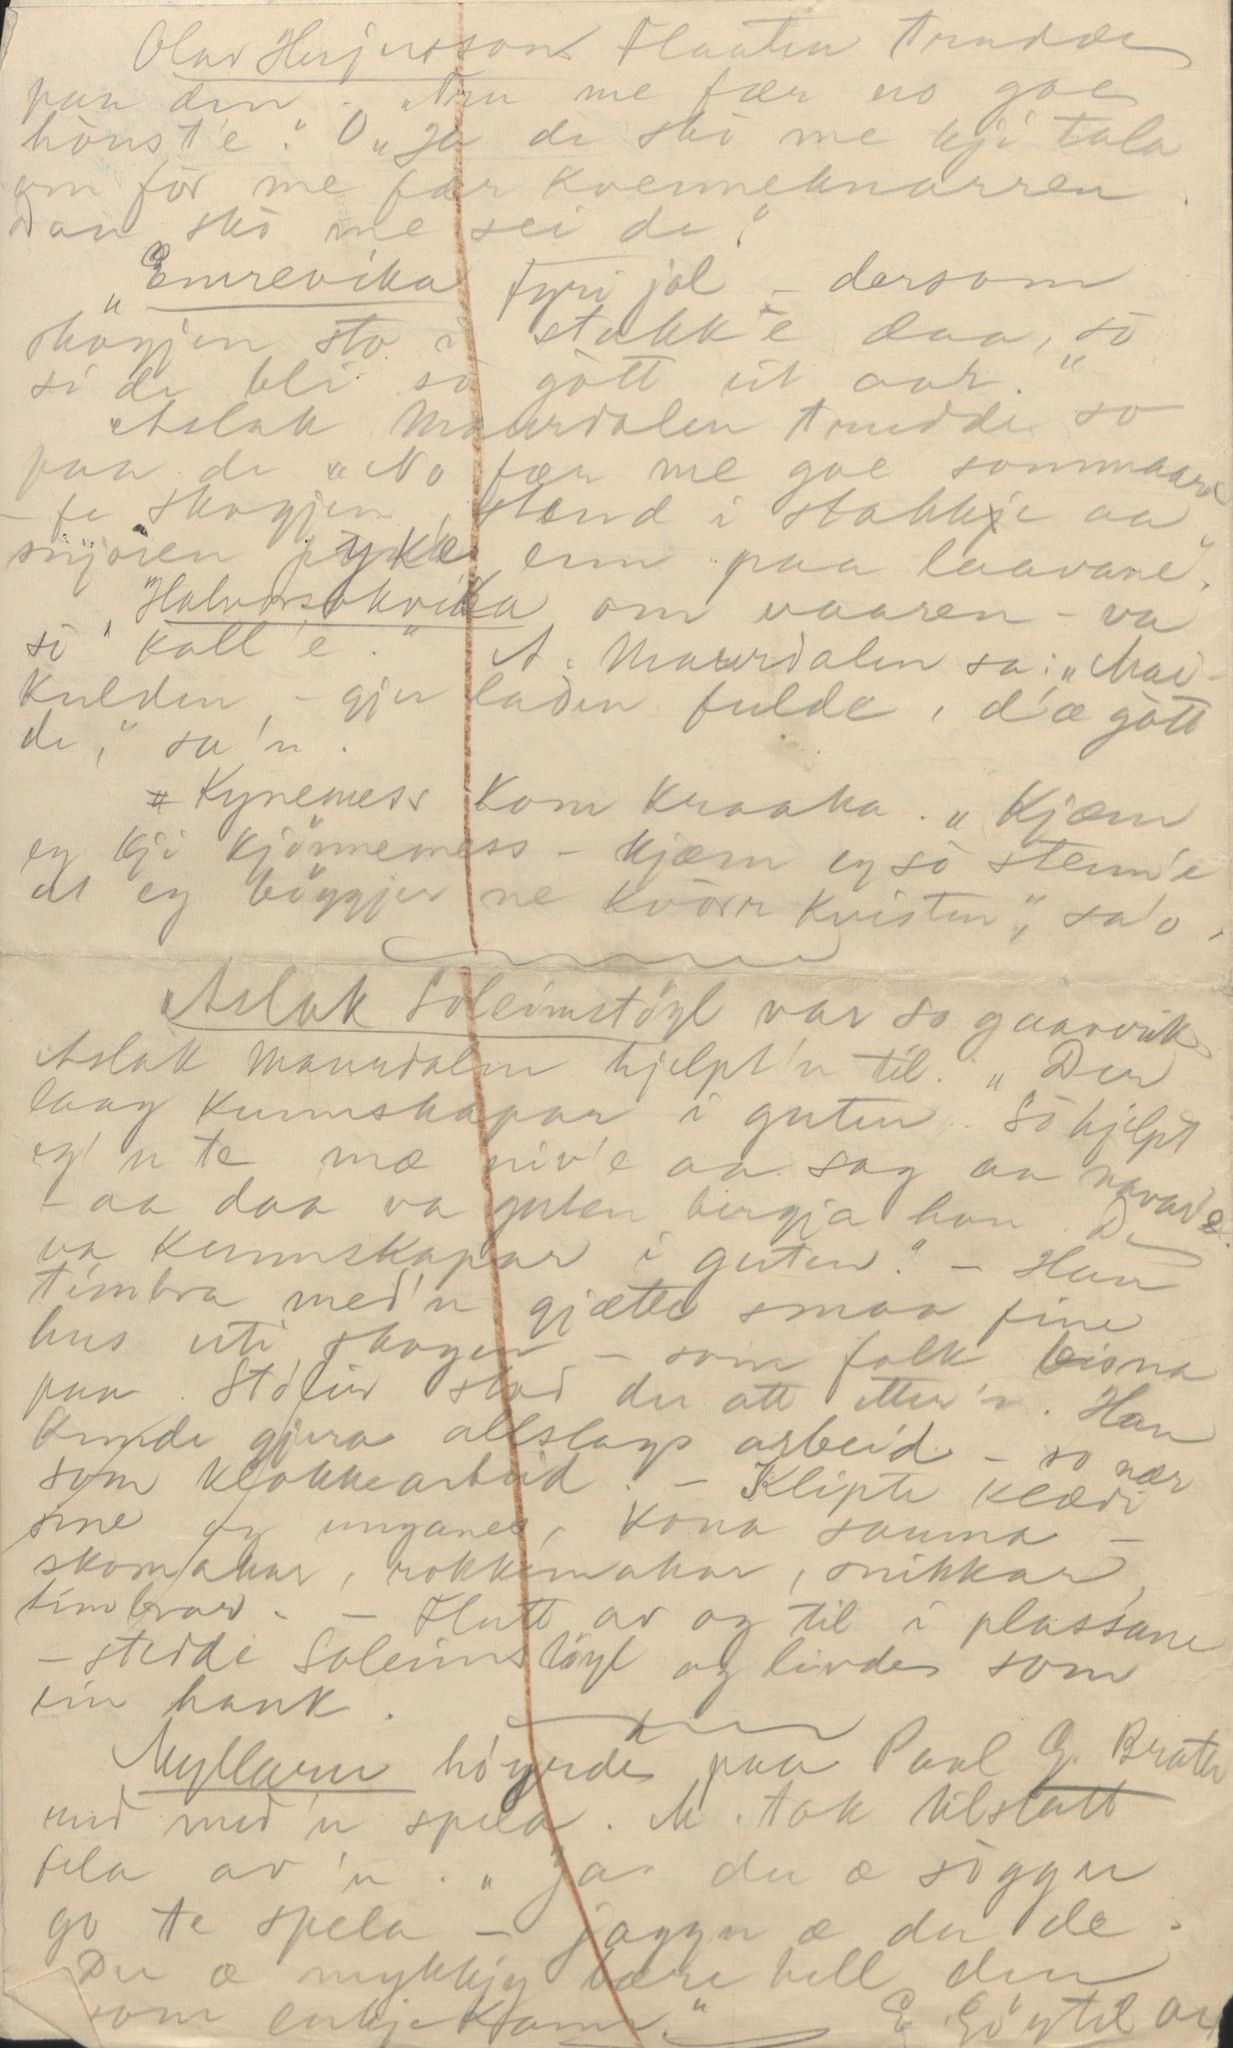 Olav Herjussons Flaaten trudde
paa den. „Nu me fær no goe
hönst'e." O „Ja de skö me kji tala
om för me fær Kvenneknarren.
Dan skö me sei de."
„Emrevika fyri jol – dersom
skogjen sto i stakk'e daa, sö
si de bli so gött eit aar."
Aslak Maurdalen trudde so
paa de „No fær me goe sommaar
– fe skogjen stend i stakkje aa
snjoien tykk'e enn paa laavane".
„Halvorsokvika om vaaren – va
sö kall'e." A. Maurdalen sa: „Mai-
Kulden – gjer laden fulde, d'æ gött
de," sa'n.
Kynemess kom kraaka. „Kjæm
eg kji kjönnemess – kjæm eg sö stein'e
at eg böggjer ne kvörr kvisten", sa'o.
Aslak Soleimstöyl var so gaarvik
Aslak Maurdalen hjelpt'n til. „Der
laag kunnskapar i guten. Sö hjelpt
eg'n te mæ niv'e aa sag aa navar'e.
– aa daa va guten bergja han. De
va kunnskapar i guten." – Han
timbra med'n gjætte smaa fine
hus uti skogen – som folk bisna
paa. Stölur stod der att etter'n. Han
kunde gjera allslags arbeid – so nær
som klokkearbeid. – Klipte klædi
sine og unganes, kona sauma –
skomakar, rokkemakar, snikkar,
timbrar. – Flutt av og til i plassane
– stødde Soleimstöyl og livde som
ein hauk.
Myllaren höyrde paa Paul G. Braten
med'n spela. M. tok tilslutt
fela av'n. „Ja du æ söggu
go te spela – jaggu æ du de.
Du æ mykkjy bære hell den
som inkje kann." E. Göytil